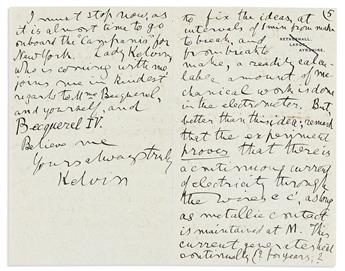 I must stop now, as
it is almost time to go
on board the "Campania" for
New York. Lady Kelvin,
who is coming with me
joins me in kindest
regards to Mme Becquerel,
and yourself, and
Becquerel IV.
Believe me
Yours always truly
Kelvin
(5
NETHERHALL,
LARGS,
AYRSHIRE.
to fix the ideas, at
intervals of 1 min from make
to break, and
from break to
make, a readily calcu-
lable amount of me-
chanical work is done
in the electrometer. But
better than this idea, remark
that the experiment
proves that there is
a continuous current
of electricity through
the wires c c', as long
as metallic contact
is maintained at M. This
current generates heat
continually (? for years; ?